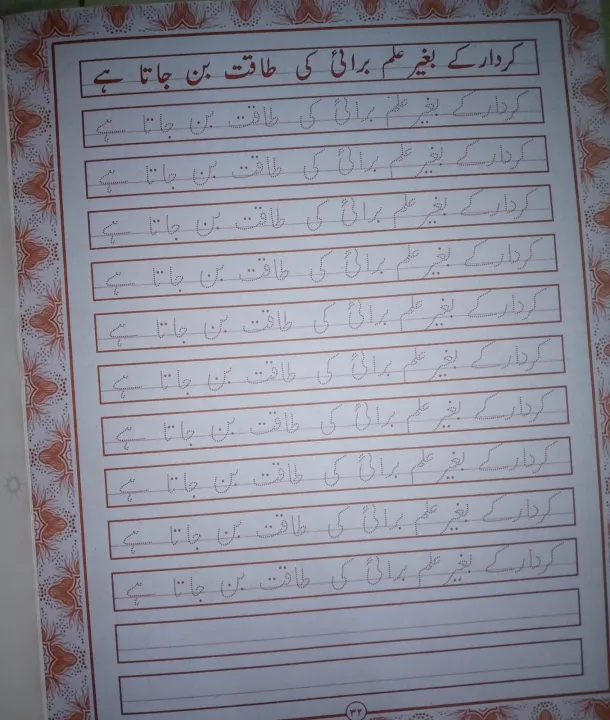 کردار کے بغیر علم برائی کی طاقت بن جاتا ہے
کردار کے بغیر علم برائی کی طاقت بن جاتا ہے
کردار کے بغیر علم برائی کی طاقت بن جاتا ہے
کردار کے بغیر علم برائی کی طاقت بن جاتا ہے
کردار کے بغیر علم برائی کی طاقت بن جاتا ہے
کردار کے بغیر علم برائی کی طاقت بن جاتا ہے
کردار کے بغیر علم برائی کی طاقت بن جاتا ہے
کردار کے بغیر علم برائی کی طاقت بن جاتا ہے
کردار کے بغیر علم برائی کی طاقت بن جاتا ہے
کردار کے بغیر علم برائی کی طاقت بن جاتا ہے
کردار کے بغیر علم برائی کی طاقت بن جاتا ہے
۳۲